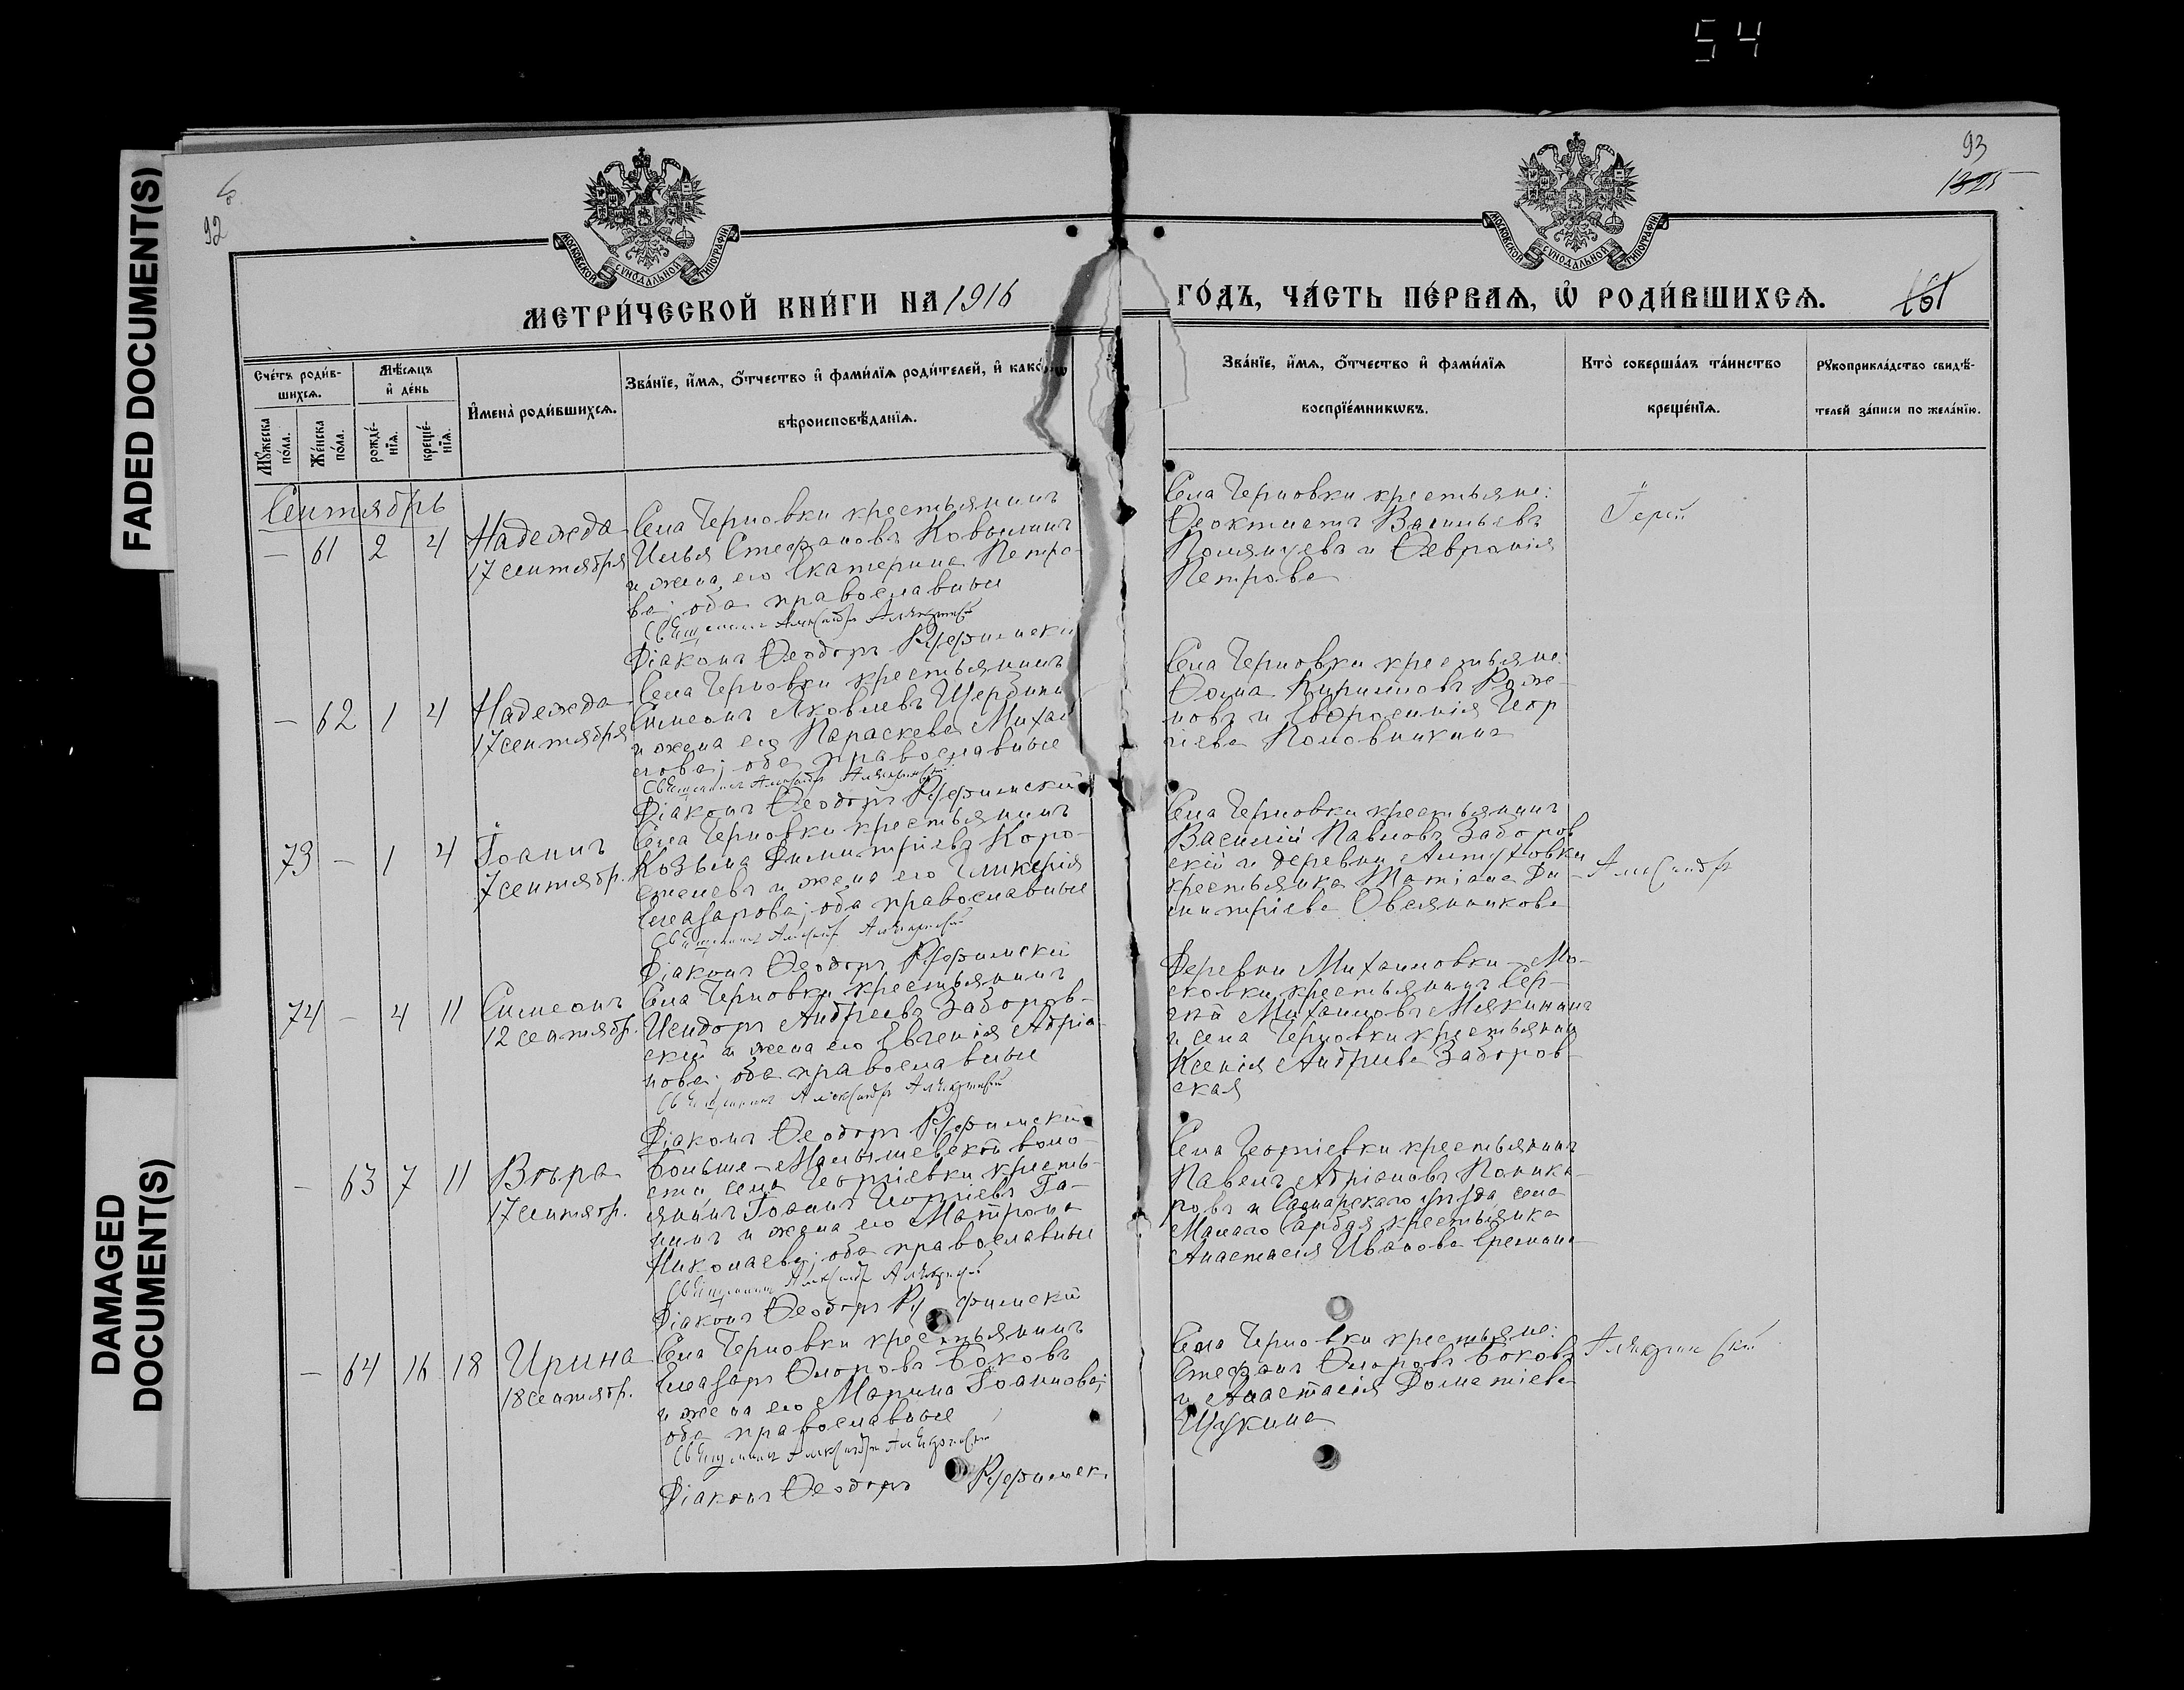 54
FADED DOCUMENT(S)
DAMAGED
DOCUMENT(S)
92
93
1325
МОСКОВСКОЙ СУНОДАЛЬНОЙ ТИПОГРАФІИ
МОСКОВСКОЙ СУНОДАЛЬНОЙ ТИПОГРАФІИ
МЕТРИ́ЧЕСКОЙ КНИ́ГИ НА 1916
ГО́ДЪ, ЧА́СТЬ ПЕ́РВАѦ, Ѡ҆ РОДИ́ВШИХСѦ.
161
Сче́тъ роди́в-
шихсѧ.
Мꙋ́жеска
по́ла.
Же́нска
по́ла.
Мѣ́сѧцъ
и҆ де́нь
рожде́-
нїѧ.
креще́-
нїѧ.
И҆мена̀ роди́вшихсѧ.
Зва́нїе, и҆́мѧ, ѻ҆́тчество и҆ фами́лїѧ роди́телей, и҆ како́гѡ
вѣроисповѣ́данїѧ.
Зва́нїе, и҆́мѧ, ѻ҆́тчество и҆ фами́лїѧ
воспрїе́мникωвъ.
Кто̀ соверша́лъ та́инство
креще́нїѧ.
Рꙋкоприкла́дство свидѣ́-
телей за́писи по жела́нїю.
Сентябрь
— 61 2 4
Надежда
17 сентября
Села Черновки крестьянинъ
Илья Стефановъ Ковылинъ
и жена его Екатерина Петро-
ва; оба православные
Священникъ Александръ
Діаконъ Ѳеодоръ
Села Черновки крестьяне:
Ѳеоктистъ Васильевъ
и Ѳевронія
Петрова
Іерей
— 62 1 4
Надежда
17 сентября
Села Черновки крестьянинъ
Симеонъ Яковлевъ Щербини
и жена его Параскева Михай
лова; оба православные
Священникъ Александръ
Діаконъ Ѳеодоръ
Села Черновки крестьяне:
Ѳома Кирилловъ Роже-
новъ и Евфросинія Геор
гіева Половинкина
73 — 1 4
Іоаннъ
7 сентябр.
Села Черновки крестьянинъ
Козьма Димитріевъ Коро-
стелевъ и жена его Гликерія
Елеазарова; оба православные
Священникъ Александръ
Діаконъ Ѳеодоръ
Села Черновки крестьянинъ
Василій Павловъ Заборов
скій и деревни Антуховки
крестьянка Татіана Ди-
митріева Овсянникова
Александръ
74 — 4 11
Симеонъ
12 сентябр.
Села Черновки крестьянинъ
Исидоръ Андреевъ Заборов-
скій и жена его Евгенія Адріа-
нова; оба православные
Священникъ Александръ
Діаконъ Ѳеодоръ
Деревни Михайловки-Мо-
сковки крестьянинъ Сер-
гѣй Михайловъ Мякининъ
и села Черновки крестьянка
Ксенія Андреева Заборов-
ская
— 63 7 11
Вѣра
17 сентябр.
Больше-Малышевской воло-
сти, села Георгіевки кресть-
янинъ Іоаннъ Георгіевъ Га-
нинъ и жена его Матрона
Николаева; оба православные
Священникъ Александръ
Діаконъ Ѳеодоръ
Села Георгіевки крестьянинъ
Павелъ Адріановъ Поника-
ровъ и Самарскаго уѣзда села
Малаго Сарбая крестьянка
Анастасія Иванова Еремина
— 64 16 18
Ирина
18 сентябр.
Села Черновки крестьянинъ
Елеазаръ Ѳлоровъ Боковъ
и жена его Марина Іоаннова;
оба православные
Священникъ Александръ
Діаконъ Ѳеодоръ
Села Черновки крестьяне:
Стефанъ Ѳлоровъ Боковъ
и Анастасія Дометіева
Щукина